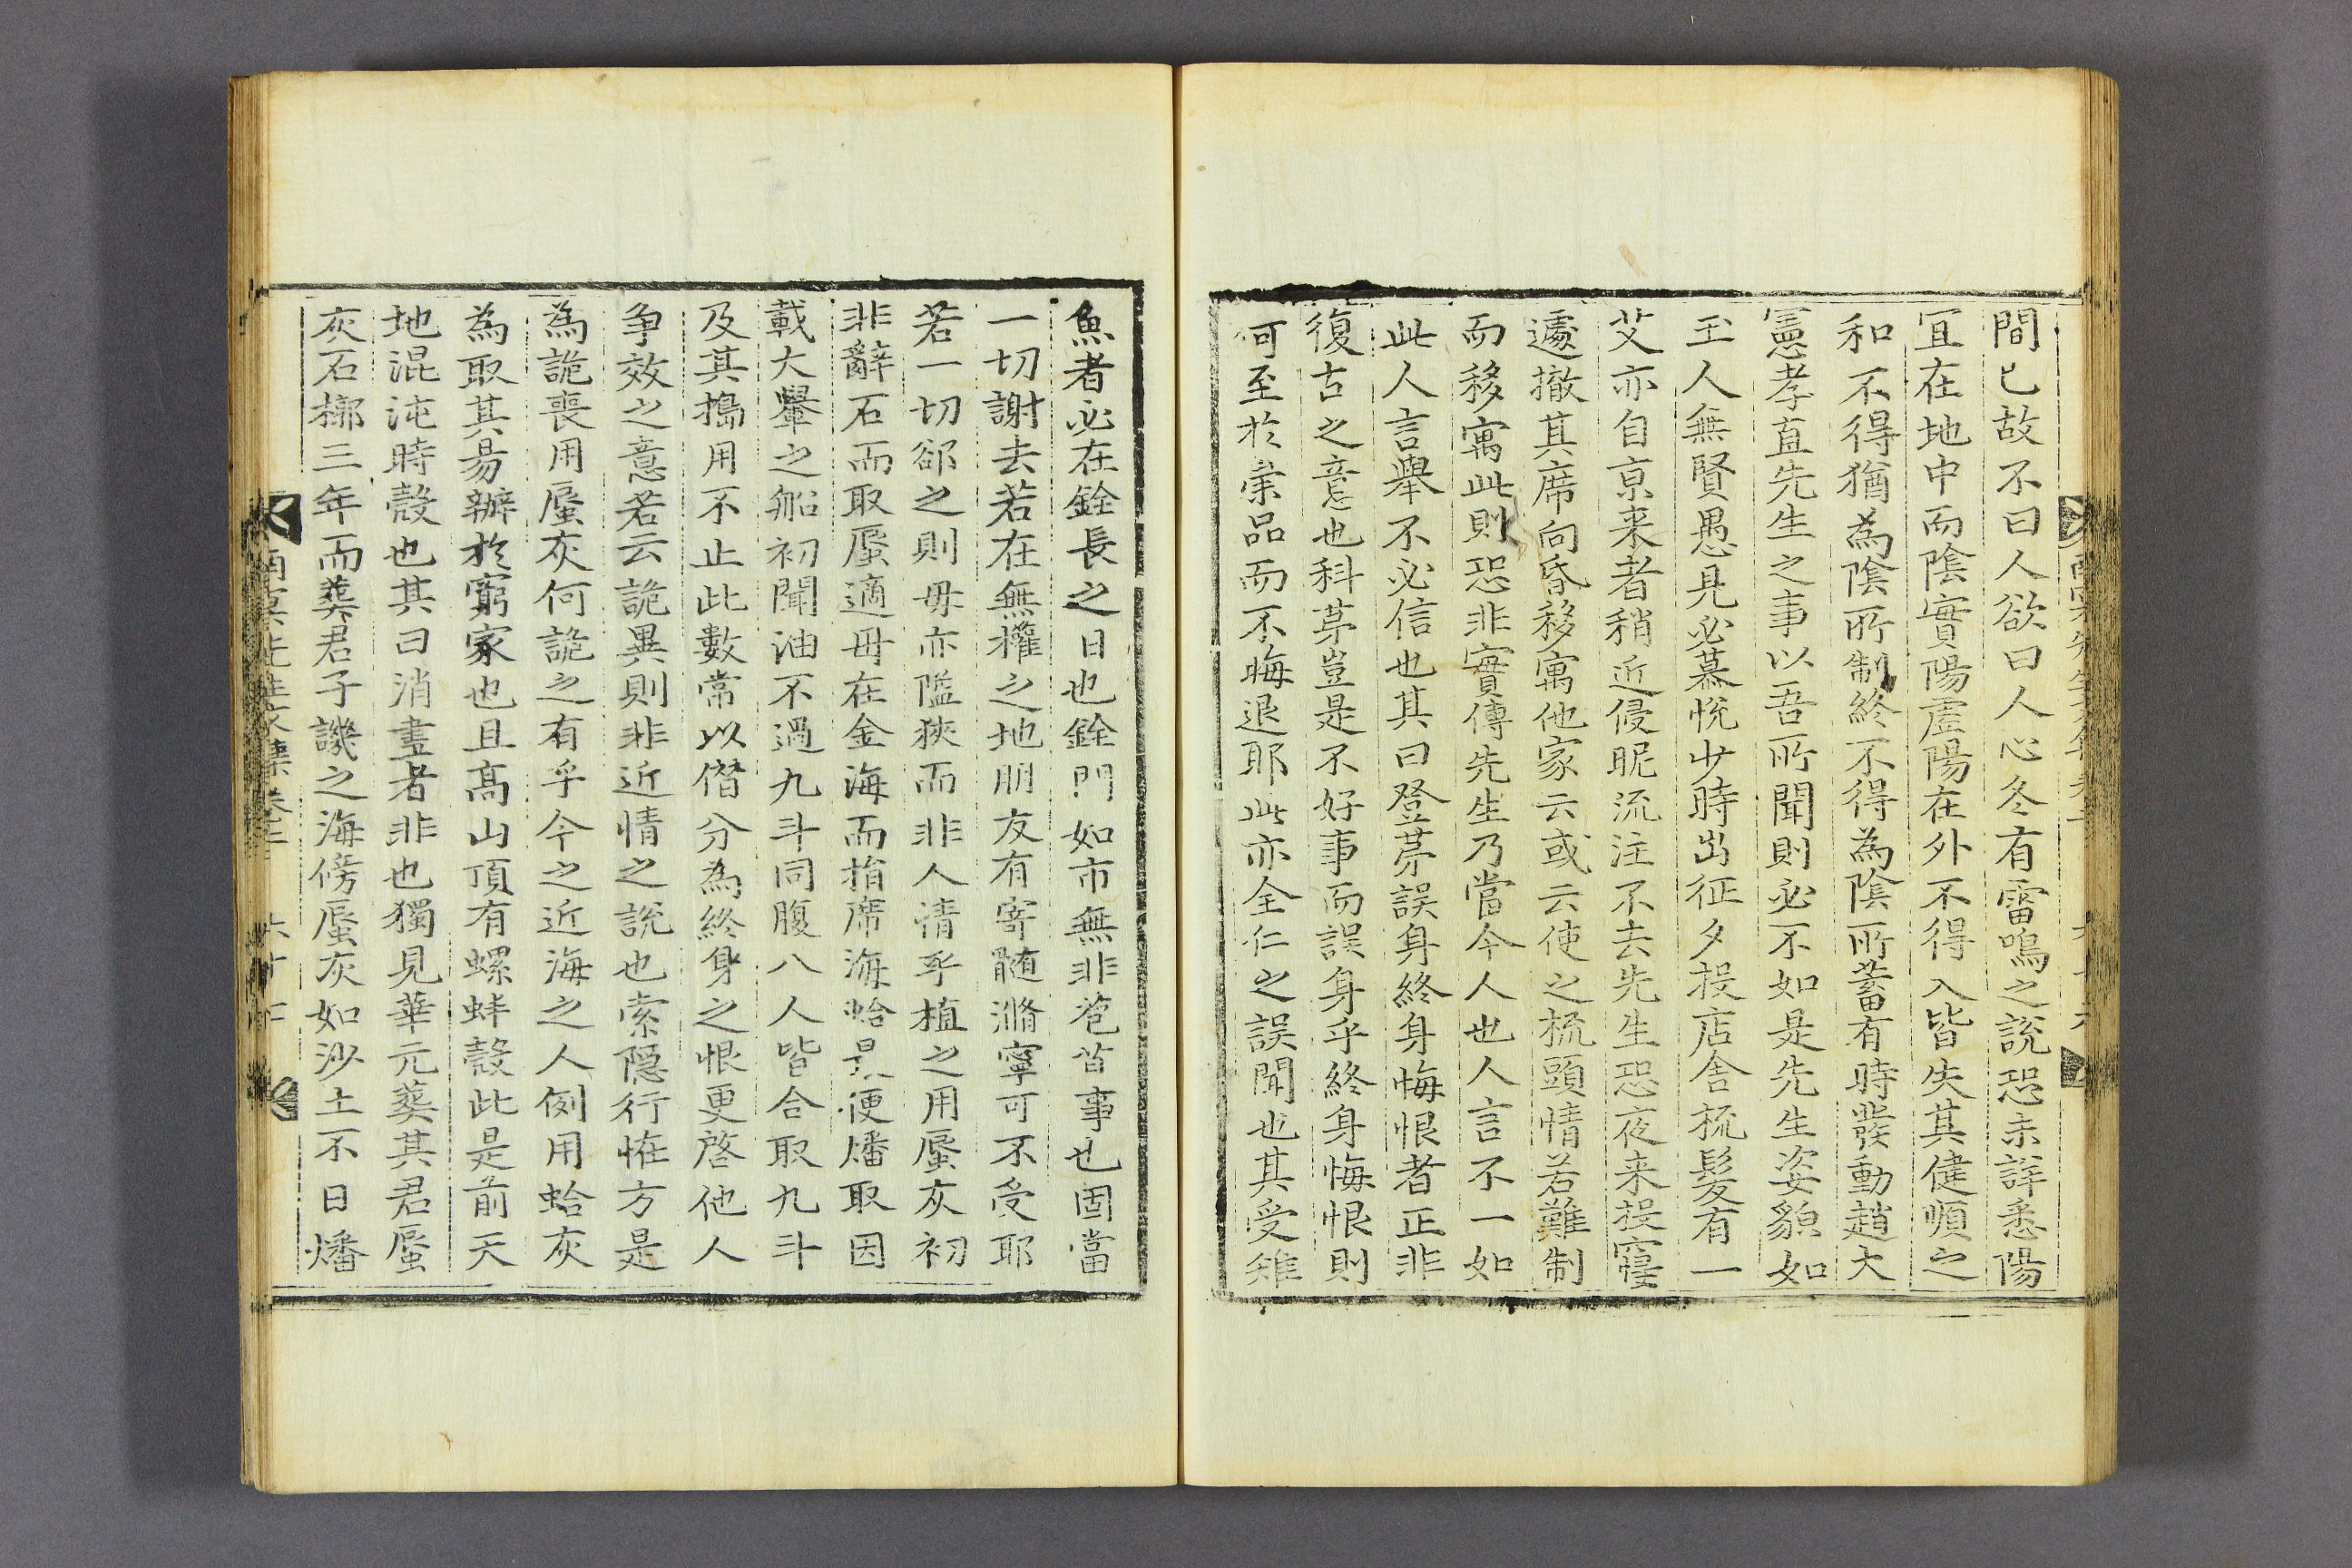 間已故不曰人欲曰人心冬有雷鳴之說恐未詳悉陽
宜在地中而陰實陽虛陽在外不得入皆失其健順之
和不得猶為陰所制終不得為陰所蓄有時發動趙大
憲孝直先生之事以吾所聞則必不如是先生姿貌如
玉人無賢愚見必慕悅少時出征夕投店舍梳髮有一
艾亦自京来者稍近侵昵流注不去先生恐夜来投寢
遽撤其席向昏移寓他家云或云使之梳頭情若難制
而移寓此則恐非實傳先生乃當今人也人言不一如
此人言舉不必信也其曰登苐誤身終身悔恨者正非
復古之意也科苐豈是不好事而誤身乎終身悔恨則
何至於崇品而不悔退耶此亦全仁之誤聞也其受雉
魚者必在銓長之日也銓門如市無非苞苴事也固當
一切謝去若在無權之地朋友有寄髄滫寧可不受耶
若一切郤之則毋亦隘狹而非人情乎植之用蜃灰初
非辭石而取蜃適毋在金海而指席海蛤具便燔取因
載大轝之船初聞油不過九斗同腹八人皆合取九斗
及其搗用不止此數常以僭分為終身之恨更啓他人
争效之意若云詭異則非近情之說也索隱行恠方是
為詭喪用蜃灰何詭之有乎今之近海之人例用蛤灰
為取其昜辦於窮家也且高山頂有螺蚌殼此是前天
地混沌時殼也其曰消盡者非也獨見華元葬其君蜃
灰石槨三年而葬君子譏之海傍蜃灰如沙土不日燔
南冥先生文集卷之